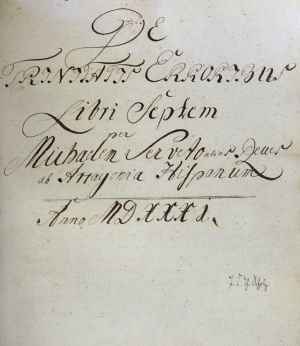 DE
TRINITATIS ERRORIBUS
Libri Septem
per
Michaelem Serveto alias Reves
ab Arragonia Hispanum
Anno MDXXXI.